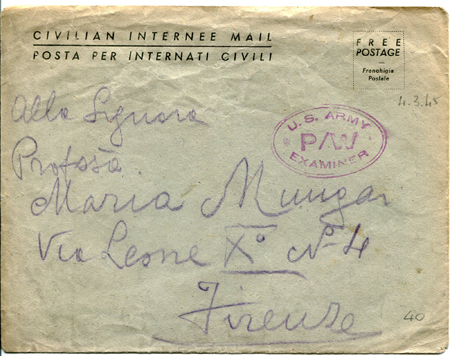 CIVILIAN INTERNEE MAIL
POSTA PER INTERNATI CIVILI
FREE
POSTAGE
Franchigia
Postale
4.3.45
U.S. ARMY
P/W
EXAMINER
Alla Signora
Profssa.
Maria Mungai
Via Leone X° N° 4
Firenze
40